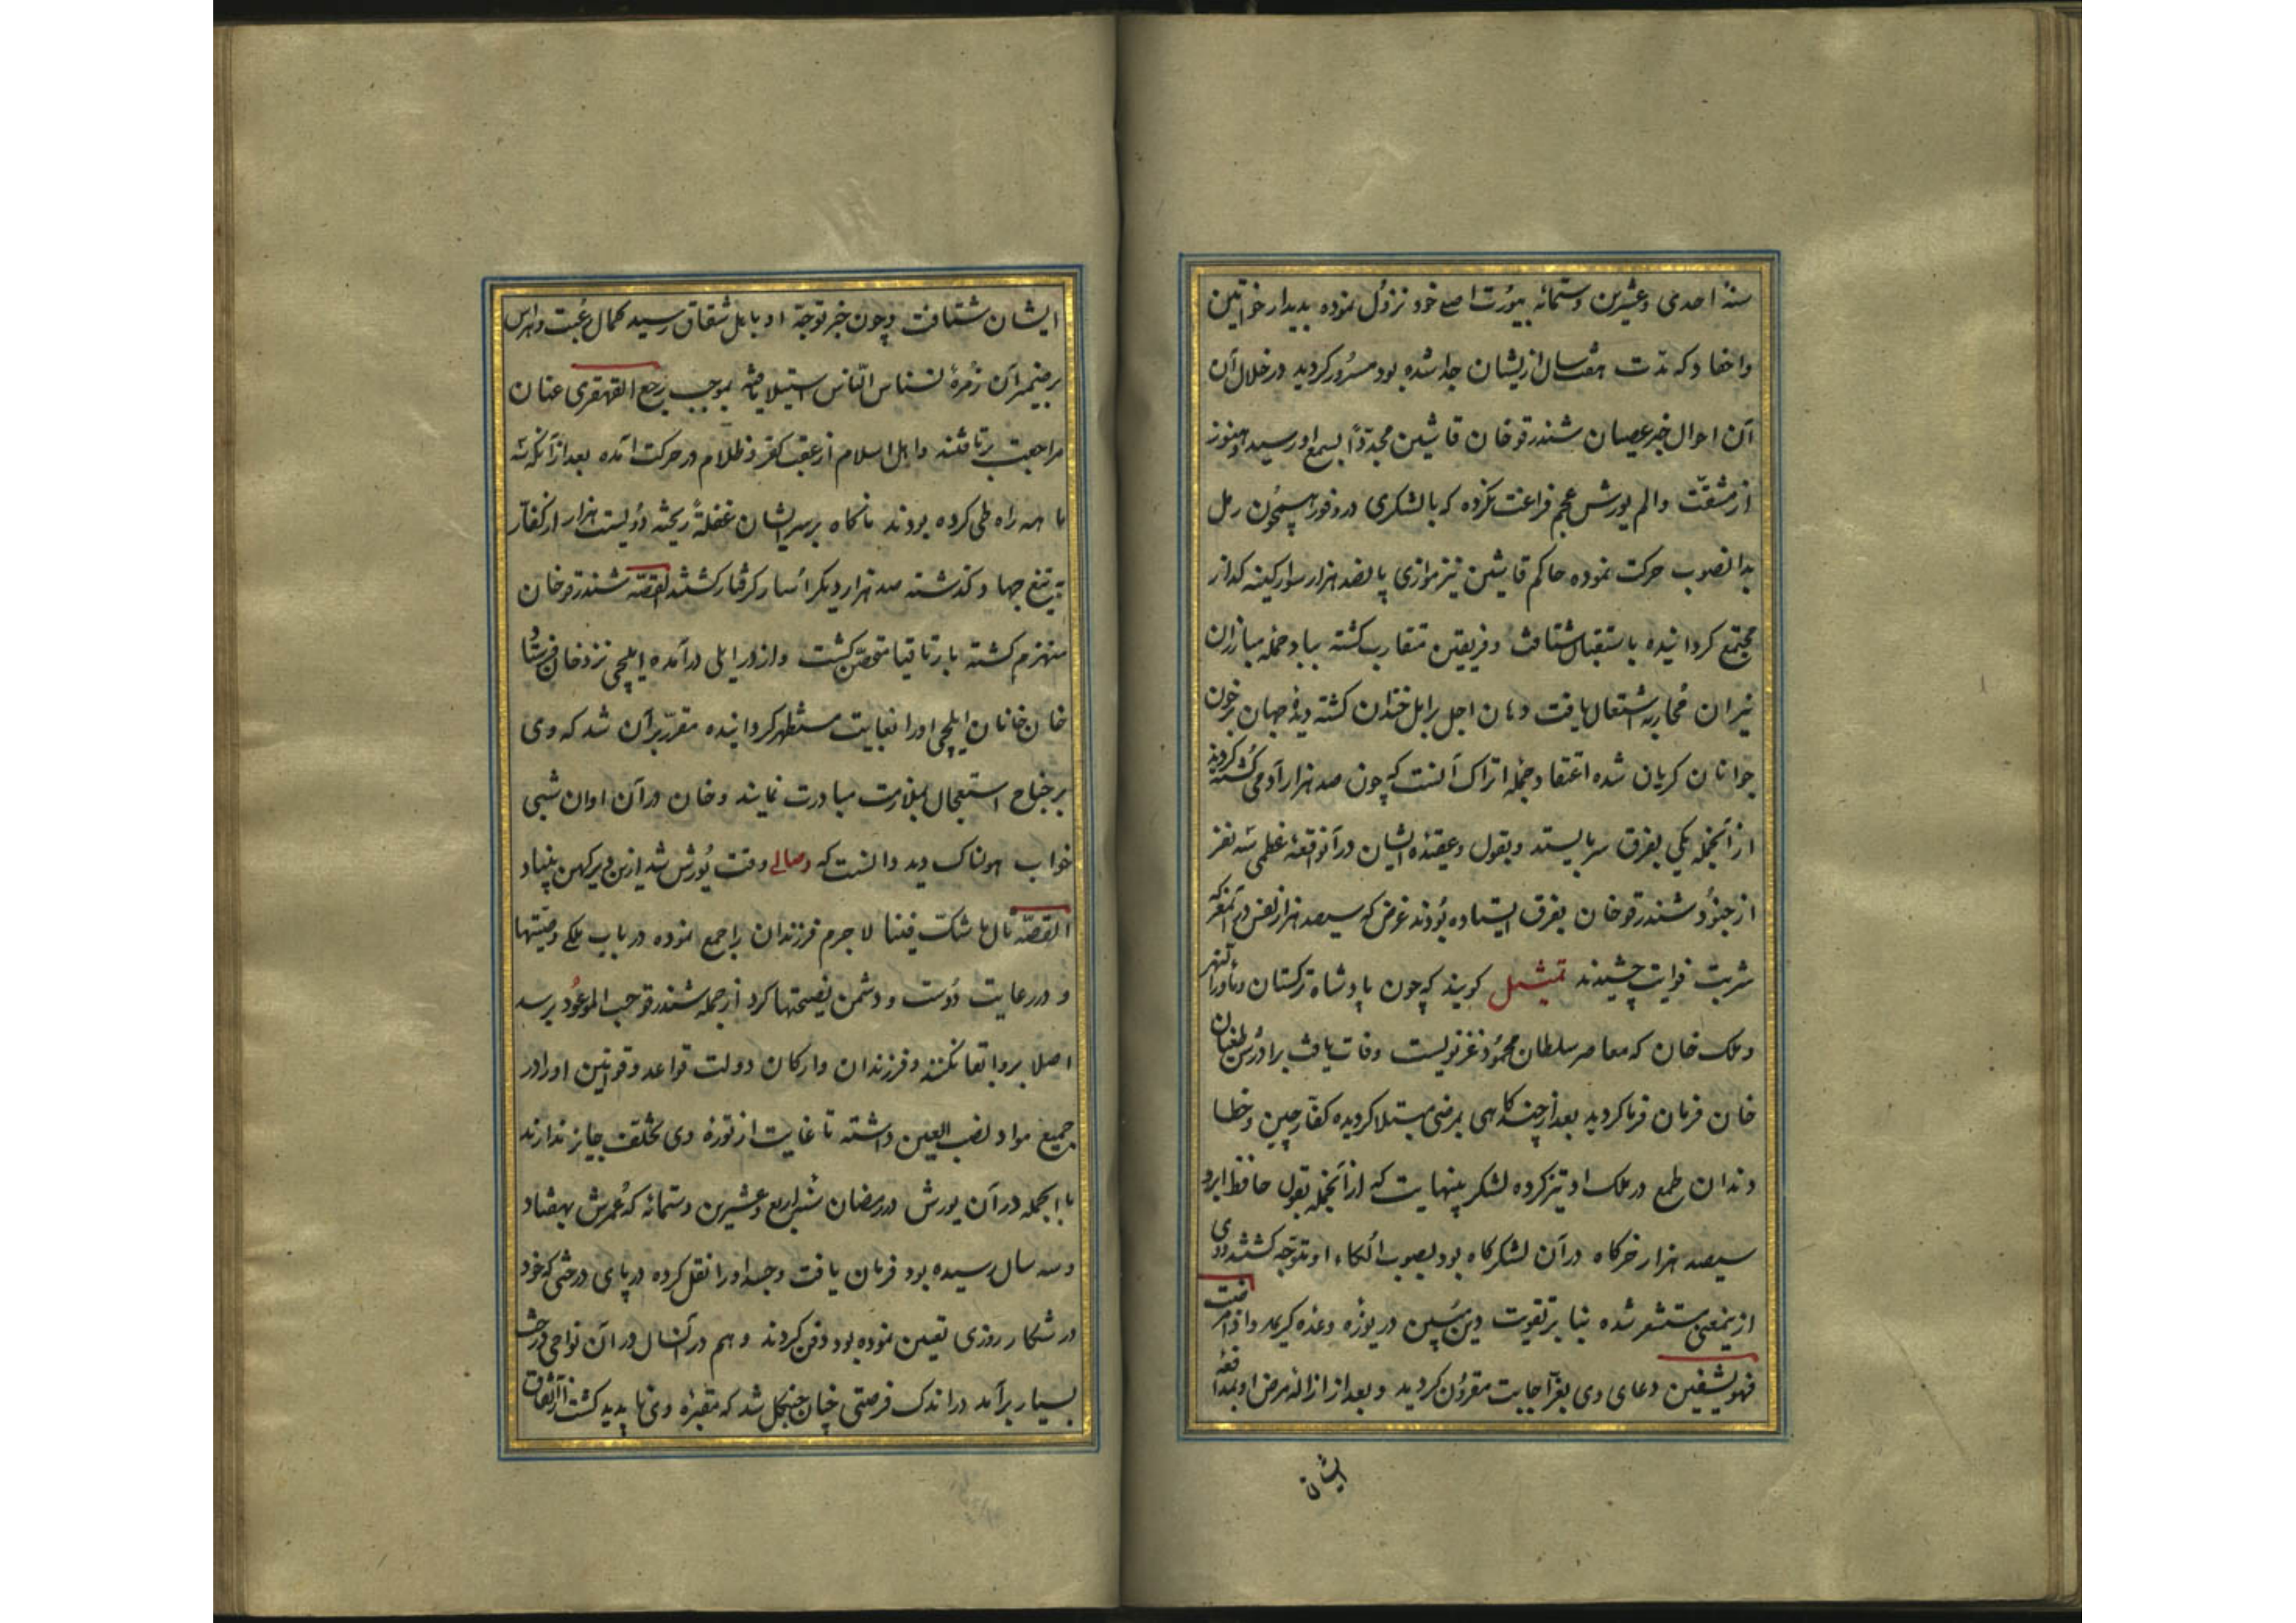 سنهٔ احدی وعشرین وستمائه بیورت اصلی خود نزول نموده بدیدار خواتین
واحفاد که مدّت هفت سال ازیشان جدا شده بود مسرور کردید در خلال آن
آن احوال خبر عصیان شندرقوخان قاشین مجدّداً بسمع او رسید و هنوز
از مشقّت والم یورش عجم فراغت نکرده که با لشکری در وفور همچون رمل
بدانصوب حرکت نموده حاکم قاشین نیز موازی پانصد هزار سوار کینه کذار
مجتمع کردانیده باستقبال شتافت وفریقین متقارب کشته بباد حمله مبارزان
نیران محاربه اشتعال یافت دهان اجل برابل خندان کشته دیدهٔ جهان بر خون
جوانان کریان شده اعتقاد جمله اتراک آنست که چون صد هزار آدمی کشته کردند
از آنجمله یکی بفرق سر بایستد وبقول وعقیدهٔ ایشان در آنواقعهٔ عظمی سه نفر
از جنود شندرقوخان بفرق ایستاده بودند غرض که سیصد هزار نفس در آنمعرکه
شربت فوات چشیدند تمثیل کویند که چون پادشاه ترکستان وماوراالنهر
وملک خان که معاصر سلطان محمود غزنویست وفات یافت برادرش طغان
خان فرمان فرما کردید بعد از چند کاهی بمرضی مبتلا کردیده کفّار چین وخطا
دندان طمع در ملک او تیز کرده لشکر بینهایت که از آنجمله بقول حافظ ابرو
سیصد هزار خرکاه در آن لشکرکاه بود بصوب الکاء او متوجّه کشتند و وی
ازینمعنی مستشعر شده بنا بر تقویت دین مبین دریوزه وعده کریمه واذا مرضت
فهو یشفین دعای وی بعزّ اجابت مقرون کردید وبعد از ازالهٔ مرض او بمدافعهٔ
ایشان
ایشان شتافت وچون خبر توجّه او باهل شقاق رسید کمال رعبت وهراس
برضمیر آن زمرهٔ نسناس النّاس استیلا یافته بموجب رجع القهقری عنان
مراجعت برتافتند واهل اسلام از عقب کفر وظلام در حرکت آمده بعد از آنکه سه
ماهه راه طی کرده بودند ناکاه بر سر ایشان غفلةً ریخته دویست هزار از کفّار
بتیغ جهاد کذشته صد هزار دیکر اسار کرفتار کشتند القصّه شندرقوخان
منهزم کشته بارتاقیا متحصّن کشت واز در ایلی درآمده ایلچی نزد خان فرستاد
خان خانان ایلچی اورا بغایت مستظهر کردانیده مقرّر بر آن شد که وی
بر جناح استعجال بملازمت مبادرت نماید وخان در آن اوان شبی
خواب هولناک دید دانست که وصالی وقت یورش شد ازین دیر کهن بنیاد
القصّه بال ها شکت فیننا لا جرم فرزندان را جمع نموده در باب ملکی وصیّتها
ودر رعایت دوست ودشمن نصیحتها کرد از جمله شندرقو حسب الموعود برسد
اصلا برو ابقا نکنند وفرزندان وارکان دولت قواعد وقوانین اورا در
جمیع مواد نصب العین داشته تا غایت از تورهٔ وی تخلّف جایز ندارند
باالجمله در آن یورش در رمضان سنهٔ اربع وعشرین وستمائه که عمرش بهفتاد
وسه سال رسیده بود فرمان یافت وجسد اورا نقل کرده در پای درختی که خود
در شکار روزی تعیین نموده بود دفن کردند وهم در آنسال در آن نواحی درخت
بسیار برآمد در اندک فرصتی چنان جنکل شد که مقبرهٔ وی ناپدید کشت از اتّفاقات